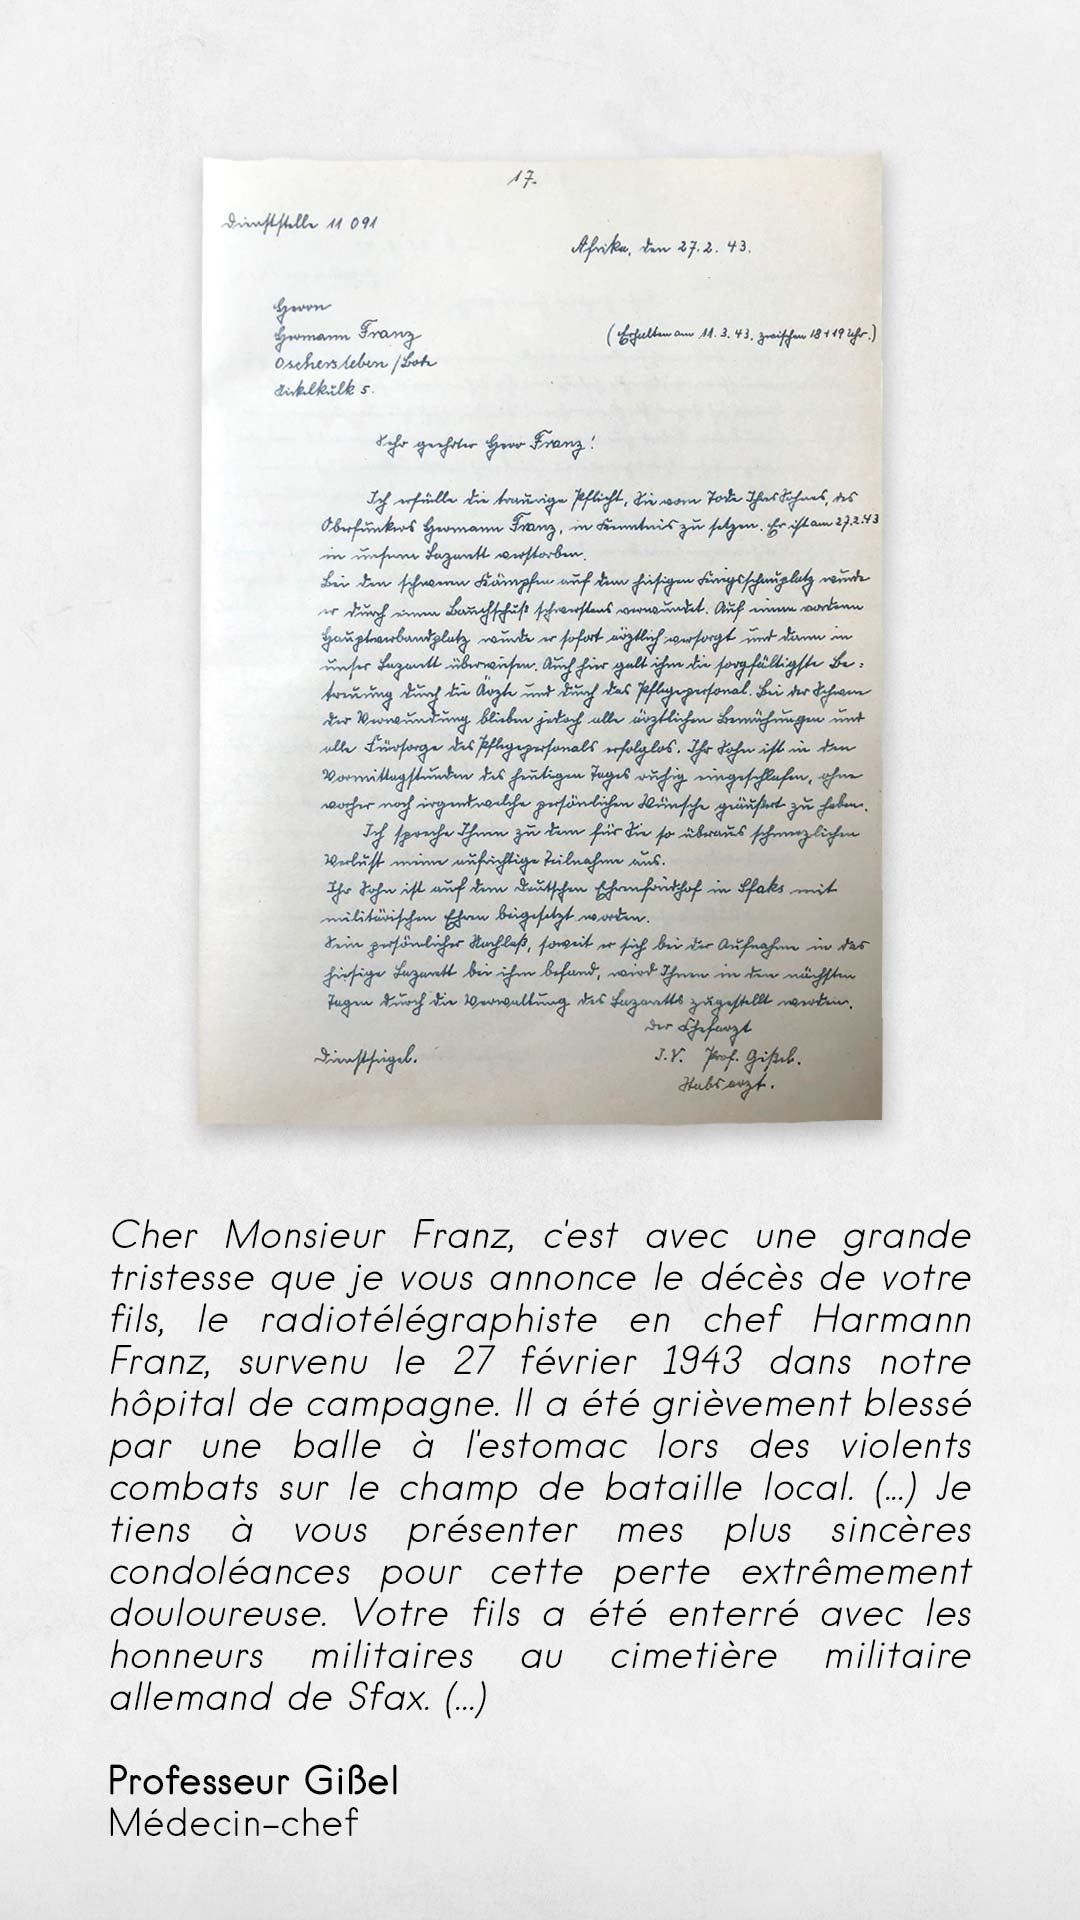 17.
Dienststelle 11 091
Afrika, den 27.2.43.
Herrn
Hermann Franz
(Erhalten am 11.3.43. zwischen 18+19 Uhr.)
Oschersleben / Bode
5.
Sehr geehrter Herr Franz!
Ich erfülle die traurige Pflicht, Sie vom Tode Ihres Sohnes, des
Oberfunkers Hermann Franz, in Kenntnis zu setzen. Er ist am 27.2.43
in unserm Lazarett verstorben.
Bei den schweren Kämpfen auf dem hiesigen Kriegsschauplatz wurde
er durch einen Bauchschuß schwerstens verwundet. Auf einem vorderen
Hauptverbandplatz wurde er sofort ärztlich versorgt und dann in
unser Lazarett überwiesen. Auch hier galt ihm die sorgfältigste Be=
treuung durch die Ärzte und durch das Pflegepersonal. Bei der Schwere
der Verwundung blieben jedoch alle ärztlichen Bemühungen und
alle Fürsorge des Pflegepersonals erfolglos. Ihr Sohn ist in den
Vormittagstunden des heutigen Tages ruhig eingeschlafen, ohne
vorher noch irgendwelche persönlichen Wünsche geäußert zu haben.
Ich spreche Ihnen zu dem für Sie so überaus schmerzlichen
Verlust meine aufrichtige Teilnahme aus.
Ihr Sohn ist auf dem Deutschen Ehrenfriedhof in Sfaks mit
militärischen Ehren beigesetzt worden.
Sein persönlicher Nachlaß, soweit er sich bei der Aufnahme in das
hiesige Lazarett bei ihm befand, wird Ihnen in den nächsten
Tagen durch die Verwaltung des Lazaretts zugestellt werden.
Der Chefarzt
Dienstsiegel.
I.V. Prof. Gißel.
Stabsarzt.
Cher Monsieur Franz, c'est avec une grande
tristesse que je vous annonce le décès de votre
fils, le radiotélégraphiste en chef Harmann
Franz, survenu le 27 février 1943 dans notre
hôpital de campagne. Il a été grièvement blessé
par une balle à l'estomac lors des violents
combats sur le champ de bataille local. (...) Je
tiens à vous présenter mes plus sincères
condoléances pour cette perte extrêmement
douloureuse. Votre fils a été enterré avec les
honneurs militaires au cimetière militaire
allemand de Sfax. (...)
Professeur Gißel
Médecin-chef